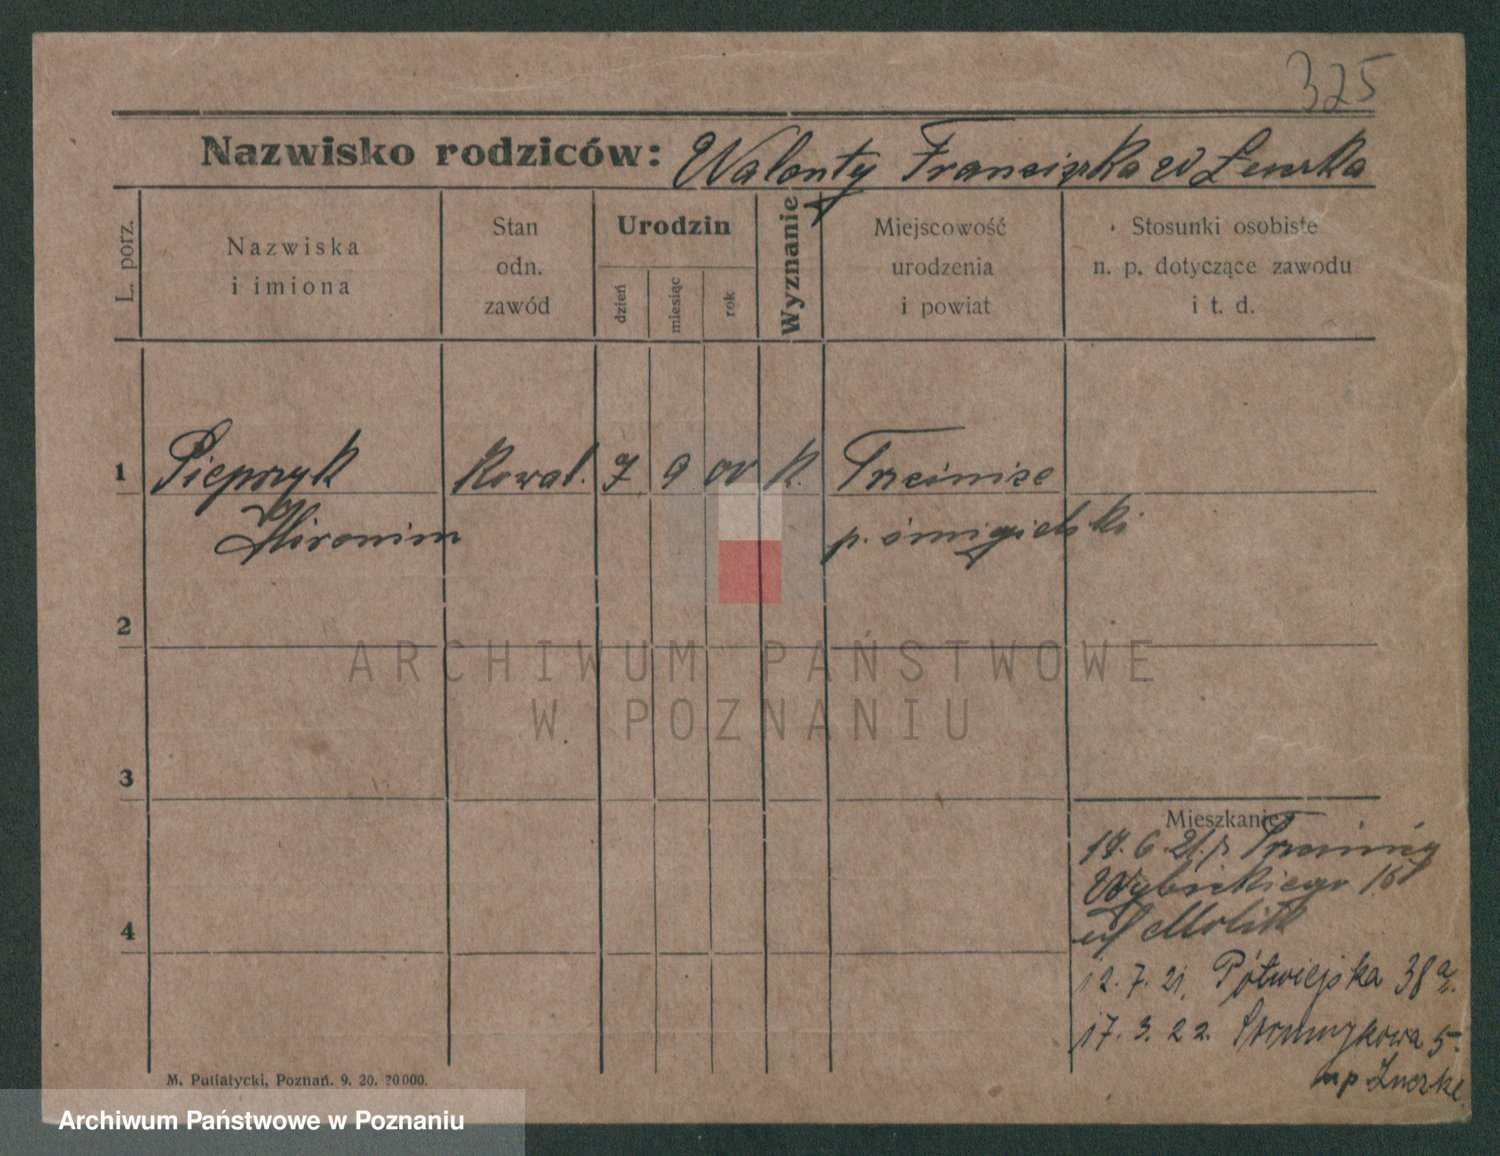 325
Nazwisko rodziców: Walenty Franciszka
L. porz.
Nazwiska
i imiona
Stan
odn.
zawód
Urodzin
dzień
miesiąc
rok
Wyznanie
Miejscowość
urodzenia
i powiat
Stosunki osobiste
n. p. dotyczące zawodu
i t. d.
1
Pieprzyk
Kowal.
7
9
00
K.
Hironim
p. śmigielski
2
ARCHIWUM PAŃSTWOWE
W POZNANIU
3
Mieszkanie
6. 21.
Wybickiego
4
12. 7. 21. Półwiejska 38a.
17. 3. 22. Strumykowa 5.
M. Putiatycki, Poznań. 9. 20. 20000.
Archiwum Państwowe w Poznaniu